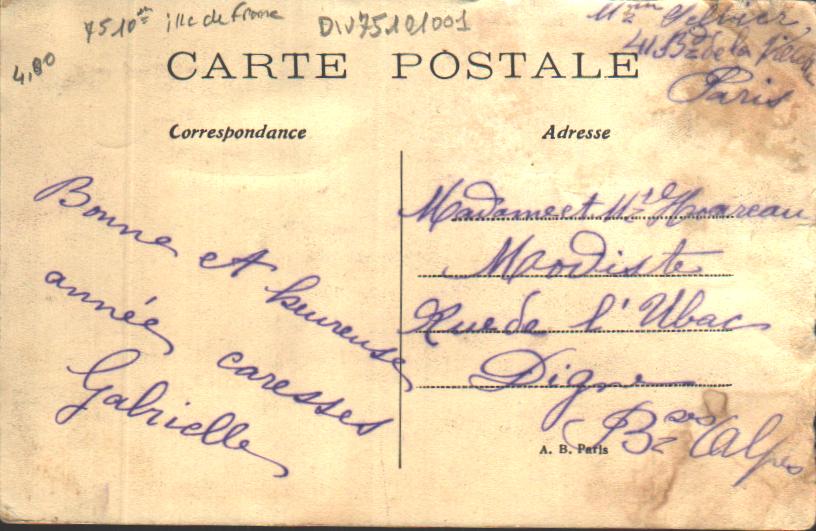 4,80
7510 ile de France
DIV75101001
41 Bd de la
Paris
CARTE POSTALE
Correspondance
Adresse
Bonne et heureuse
année caresses
Gabrielle
Madame et Mr Hoareau
Modiste
Rue de l'Ubac
Digne
Bses Alpes
A. B. Paris